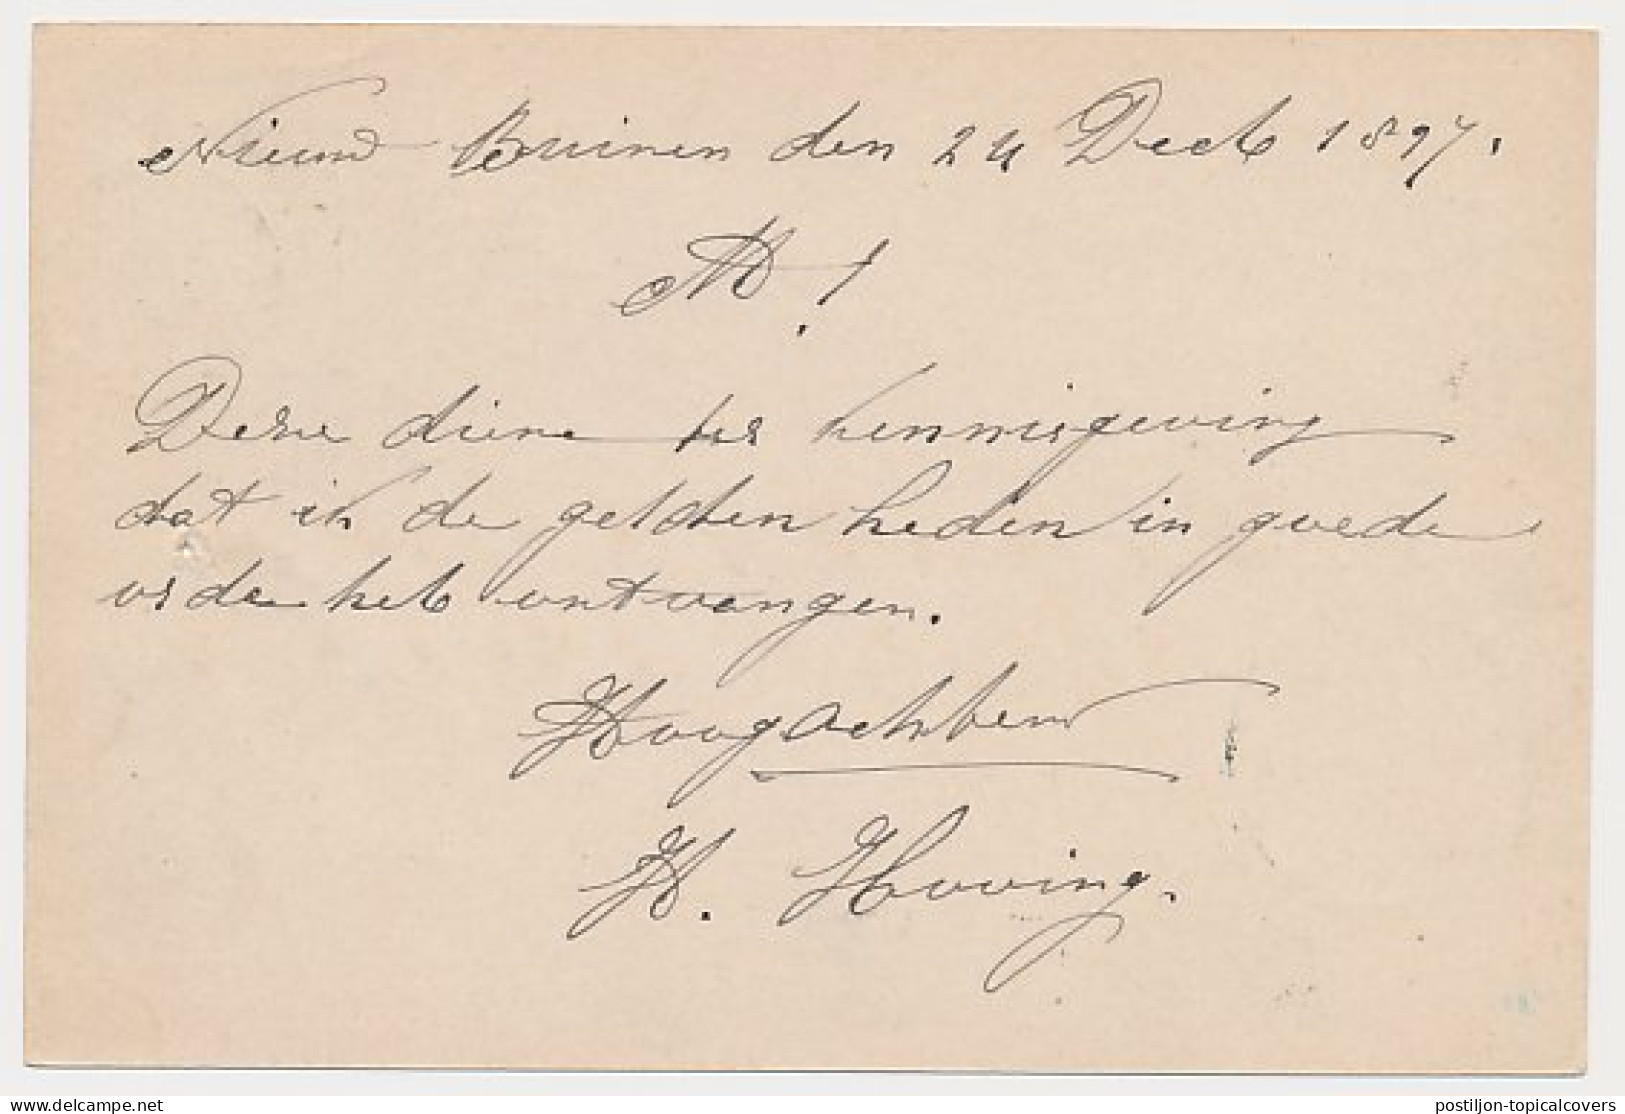 Nieuw Buinen den 24 Decb 1897.
M!
Deze diene ter kennisgeving
dat ik de gelden heden in goede
orde heb ontvangen.
Hoogachtend
H. Hoving.
delcampe.net
postiljon-topicalcovers